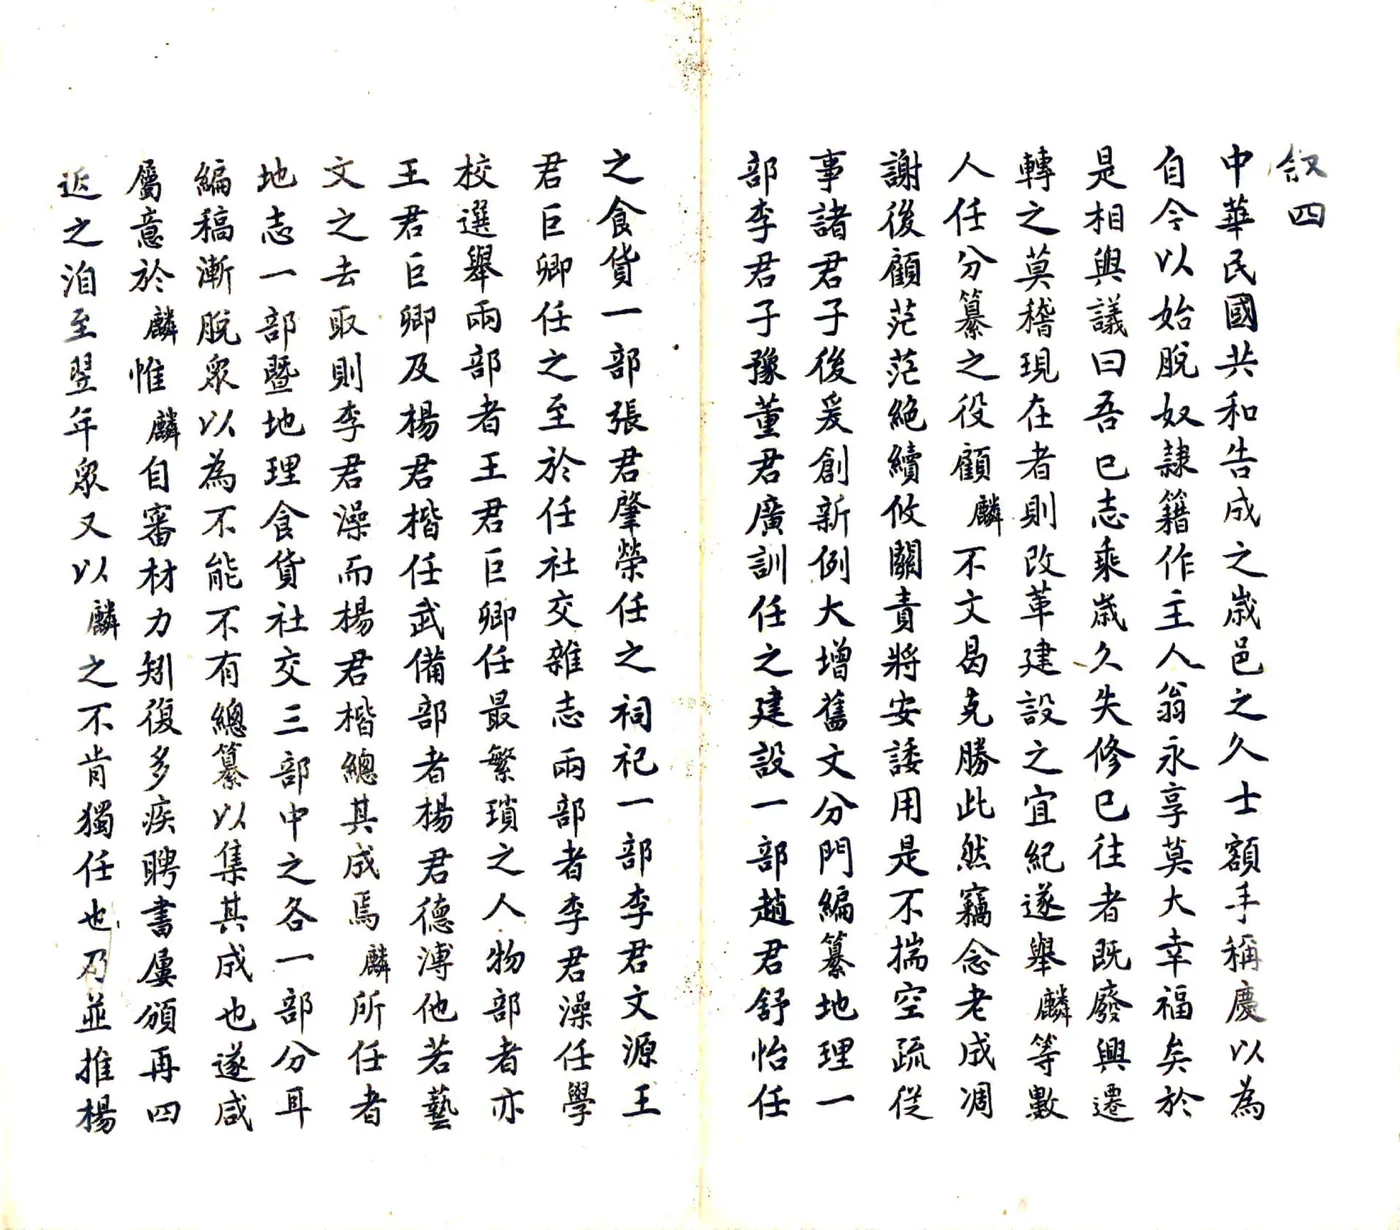 叙四
中華民國共和告成之歲邑之久士額手稱慶以為
自今以始脫奴隸籍作主人翁永享莫大幸福矣於
是相與議曰吾已志乘歲久失修已往者既廢興遷
轉之莫稽現在者則改革建設之宜紀遂舉麟等數
人任分纂之役顧麟不文曷克勝此然竊念老成凋
謝後顧茫茫絕續攸關責將安諉用是不揣空疏從
事諸君子後爰創新例大增舊文分門編纂地理一
部李君子豫董君廣訓任之建設一部趙君舒怡任
之食貨一部張君肇榮任之祠祀一部李君文源王
君巨卿任之至於任社交雜志兩部者李君澡任學
校選舉兩部者王君巨卿任最繁瑣之人物部者亦
王君巨卿及楊君楷任武備部者楊君德溥他若藝
文之去取則李君澡而楊君楷總其成焉麟所任者
地志一部暨地理食貨社交三部中之各一部分耳
編稿漸脫眾以為不能不有總纂以集其成也遂咸
屬意於麟惟麟自審材力矧復多疾聘書屢頒再四
返之洎至翌年眾又以麟之不肯獨任也乃並推楊